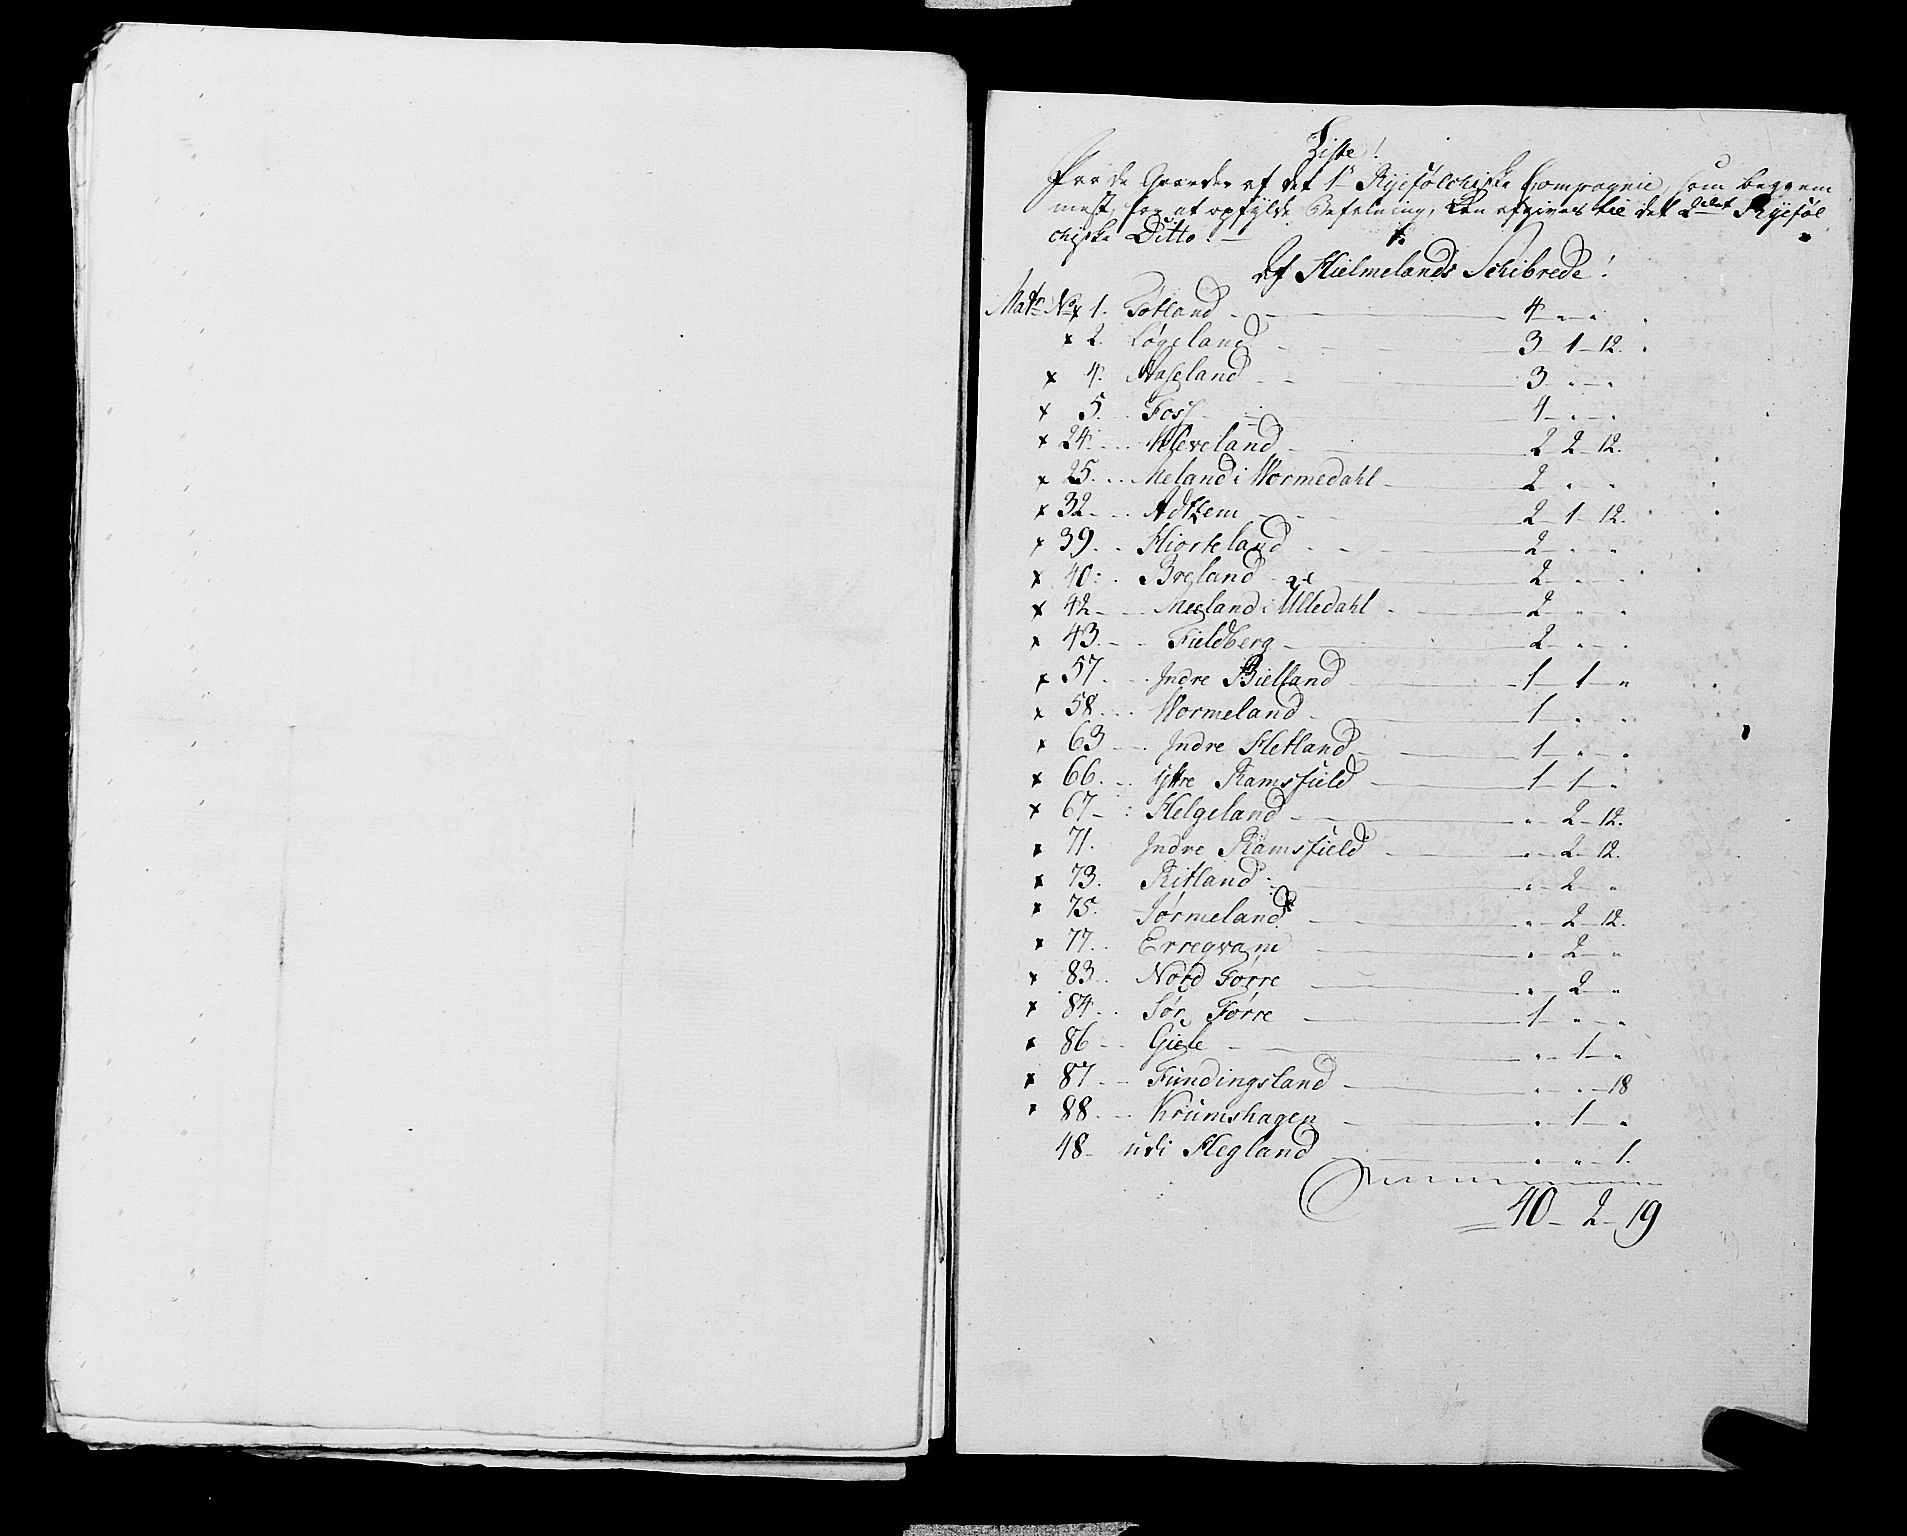 Liste!
Paa de Gaarder af det 1ste Ryefølchiske Compagnie, som beqvem
mest, for at opfylde Befalning, kan afgives til det 2det Ryeføl
chiske Ditto. —
Af Hielmelands Schibrede!
Matr No x 1. Tøtland — 4 — " — "
x 2. Løgeland — 3 — 1 — 12.
x 4. Aaseland — 3 " — "
x 5. Foss — 4 — " — "
x 24. Kleveland — 2 2 — 12.
x 25. Meland i Wormedahl — 2 " "
x 32 — Adtzem — 2 — 1 — 12.
x 39. Hiorteland — 2 — " — "
x 40. Bregland — 2 — " — "
x 42 — Megland i Ulledahl — 2 — " — "
x 43. — Fieldberg — 2 — " — "
x 57. Indre Bielland — 1 — 1 — "
x 58. Wormeland — 1 — " — "
x 63 — Indre Hetland — 1 — " — "
x 66. Yttre Ramsfield — 1 — 1 — "
x 67 — Helgeland — " — 2 — 12.
x 71. Indre Ramsfield — " — 2 — 12.
x 73. Ritland — " — 2 — "
x 75. Sørmeland — " — 2 — 12.
x 77. Erregvam — " — 2 — "
x 83. Nord Førre — " — 2 — "
x 84. Sør Førre — 1 — " — "
x 86 — Giele — " — 1 — "
x 87 — Fundingsland — " — " — 18
x 88. — Krumshagen — " — 1 — "
48 — udi Hegland — " — " — 1.
40 — 2 — 19